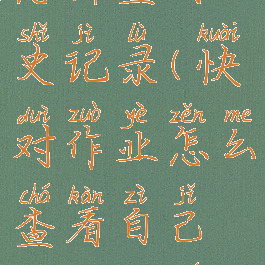 shǐ jì lù kuài
史记录(快
duì zuò yè zěn me
对作业怎么
chá kàn zì jǐ
查看自己